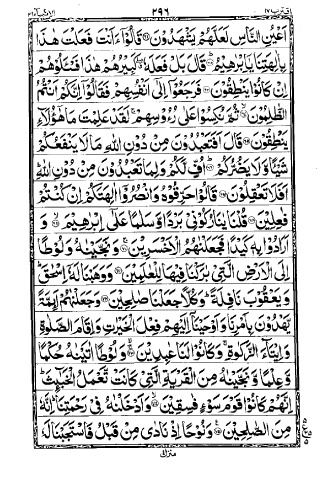 اقترب ١٧ ٢٩٦ الانبياء ٢١
اَعْيُنِ النَّاسِ لَعَلَّهُمْ يَشْهَدُوْنَ قَالُوْٓا ءَاَنْتَ فَعَلْتَ هٰذَا
بِاٰلِهَتِنَا يٰٓاِبْرٰهِيْمُ قَالَ بَلْ فَعَلَهٗ كَبِيْرُهُمْ هٰذَا فَسْـَٔلُوْهُمْ
اِنْ كَانُوْا يَنْطِقُوْنَ فَرَجَعُوْٓا اِلٰٓى اَنْفُسِهِمْ فَقَالُوْٓا اِنَّكُمْ اَنْتُمُ
الظّٰلِمُوْنَ ثُمَّ نُكِسُوْا عَلٰى رُءُوْسِهِمْ لَقَدْ عَلِمْتَ مَا هٰٓؤُلَآءِ
يَنْطِقُوْنَ قَالَ اَفَتَعْبُدُوْنَ مِنْ دُوْنِ اللّٰهِ مَا لَا يَنْفَعُكُمْ
شَيْـًٔا وَّلَا يَضُرُّكُمْ اُفٍّ لَّكُمْ وَلِمَا تَعْبُدُوْنَ مِنْ دُوْنِ اللّٰهِ
اَفَلَا تَعْقِلُوْنَ قَالُوْا حَرِّقُوْهُ وَانْصُرُوْٓا اٰلِهَتَكُمْ اِنْ كُنْتُمْ
فٰعِلِيْنَ قُلْنَا يٰنَارُ كُوْنِيْ بَرْدًا وَّسَلٰمًا عَلٰٓى اِبْرٰهِيْمَ وَ
اَرَادُوْا بِهٖ كَيْدًا فَجَعَلْنٰهُمُ الْاَخْسَرِيْنَ وَنَجَّيْنٰهُ وَلُوْطًا
اِلَى الْاَرْضِ الَّتِيْ بٰرَكْنَا فِيْهَا لِلْعٰلَمِيْنَ وَوَهَبْنَا لَهٗٓ اِسْحٰقَ
وَيَعْقُوْبَ نَافِلَةً وَكُلًّا جَعَلْنَا صٰلِحِيْنَ وَجَعَلْنٰهُمْ اَئِمَّةً
يَّهْدُوْنَ بِاَمْرِنَا وَاَوْحَيْنَآ اِلَيْهِمْ فِعْلَ الْخَيْرٰتِ وَاِقَامَ الصَّلٰوةِ
وَاِيْتَآءَ الزَّكٰوةِ وَكَانُوْا لَنَا عٰبِدِيْنَ وَلُوْطًا اٰتَيْنٰهُ حُكْمًا
وَّعِلْمًا وَّنَجَّيْنٰهُ مِنَ الْقَرْيَةِ الَّتِيْ كَانَتْ تَّعْمَلُ الْخَبٰٓئِثَ
اِنَّهُمْ كَانُوْا قَوْمَ سَوْءٍ فٰسِقِيْنَ وَاَدْخَلْنٰهُ فِيْ رَحْمَتِنَا اِنَّهٗ
مِنَ الصّٰلِحِيْنَ وَنُوْحًا اِذْ نَادٰى مِنْ قَبْلُ فَاسْتَجَبْنَا لَهٗ
منزل